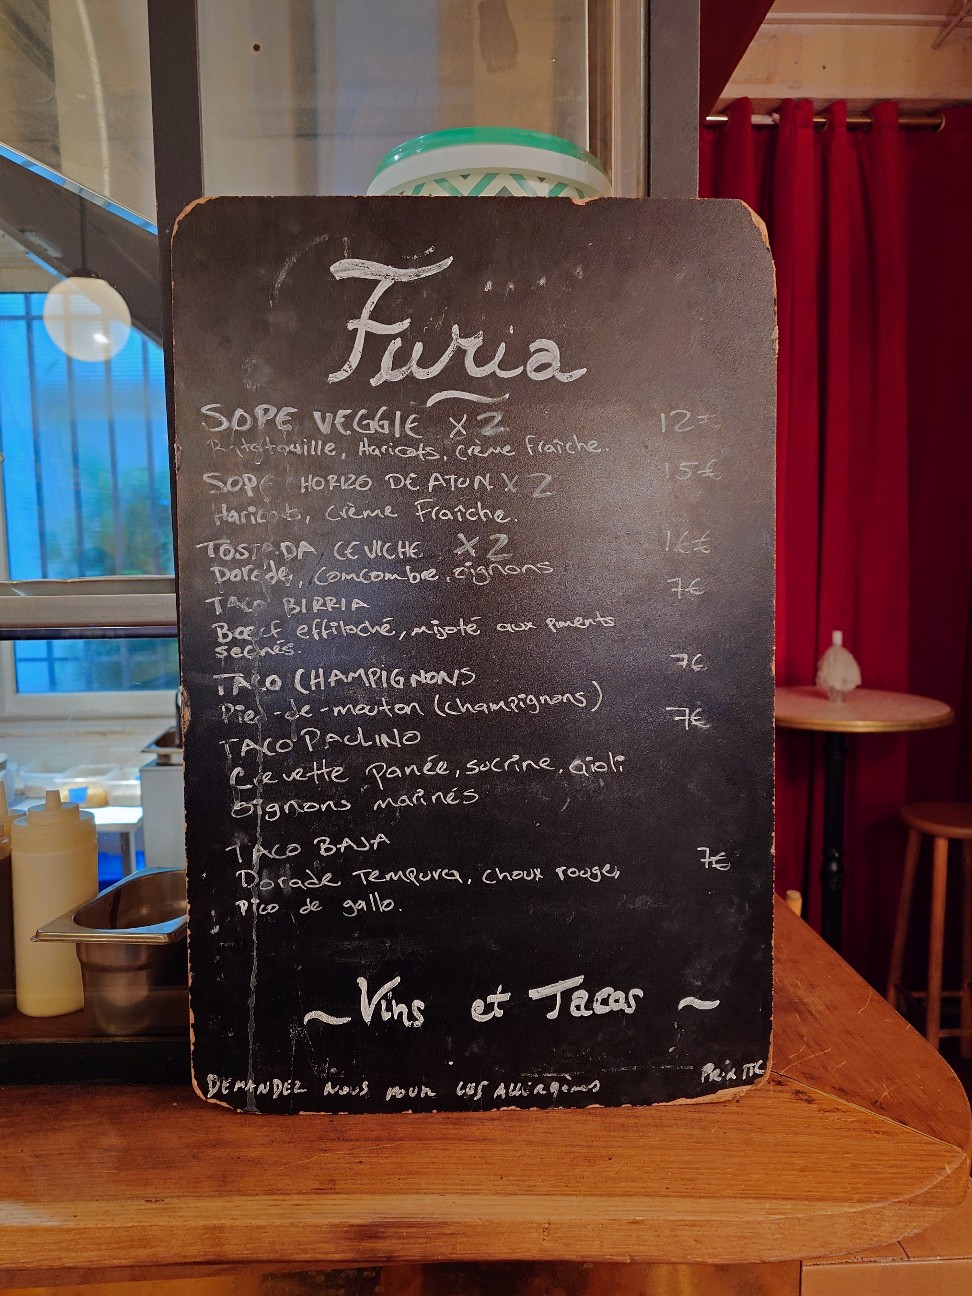 Furia
SOPE VEGGIE X 2 12
Ratatouille, Haricots, Crème Fraîche.
SOPE HORIZO DE ATUN X 2 15€
Haricots, Crème Fraîche.
TOSTADA CEVICHE X 2 16€
Dorade, Comcombre, oignons
TACO BIRRIA 7€
Bœuf effiloché, mijoté aux piments
sechés.
TACO CHAMPIGNONS 7€
Pied-de-mouton (champignons)
TACO PAULINO 7€
Crevette panée, sucrine, aioli
oignons marinés
TACO BAJA 7€
Dorade Tempura, choux rouge,
Pico de gallo.
~ Vins et Tacos ~
DEMANDEZ NOUS POUR LES Allergènes Prix TTC